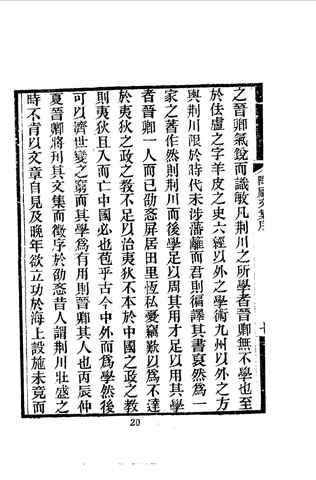 之晉卿氣銳而識敏凡荆川之所學者晉卿無不學也至
於佉盧之字羊皮之史六經以外之學術九州以外之方
輿荆川限於時代未涉藩離而君則徧譯其書裒然爲一
家之著作然則荆川而後學足以周其用才足以用其學
者晉卿一人而已劭忞屏居田里恆私憂竊歎以爲不達
於夷狄之政之教不足以治夷狄不本於中國之政之教
則夷狄且入而亡中國必也苞乎古今中外而爲學然後
可以濟世變之窮而其學爲有用則晉卿其人也丙辰仲
夏晉卿將刊其文集而徵序於劭忞昔人謂荆川壯盛之
時不肯以文章自見及晚年欲立功於海上設施未竟而
20